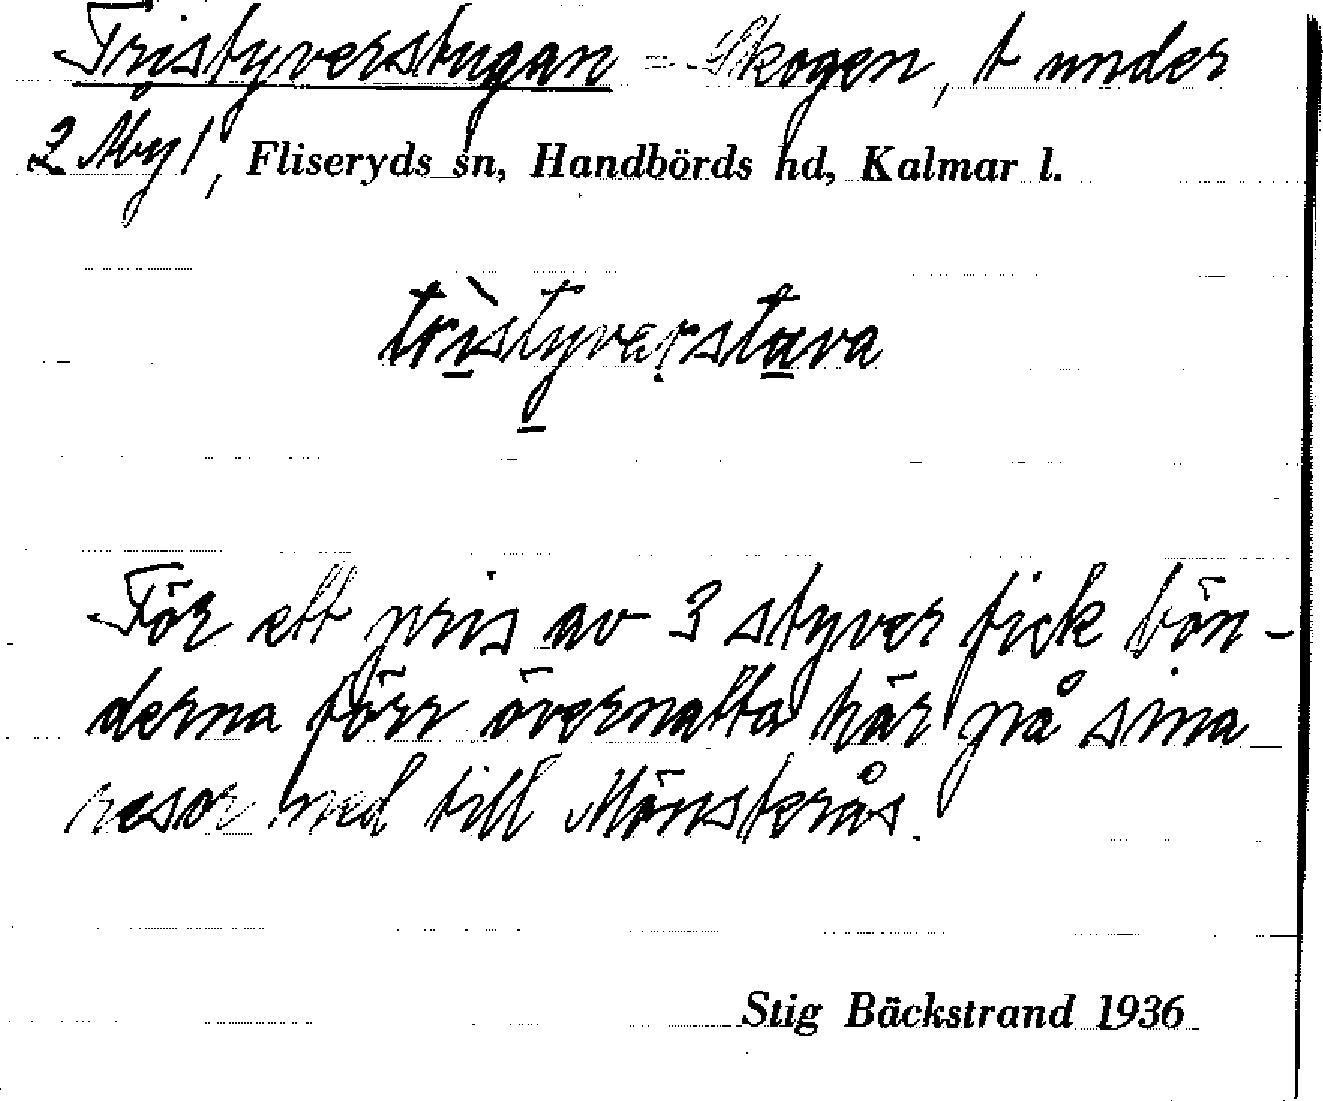 Tristyverstugan = Skogen, t under
2 Åby 1, Fliseryds sn, Handbörds hd, Kalmar l.
trìstyvərstuva
För ett pris av 3 styver fick bön-
derna förr övernatta här på sina
resor ned till Mönsterås.
Stig Bäckstrand 1936